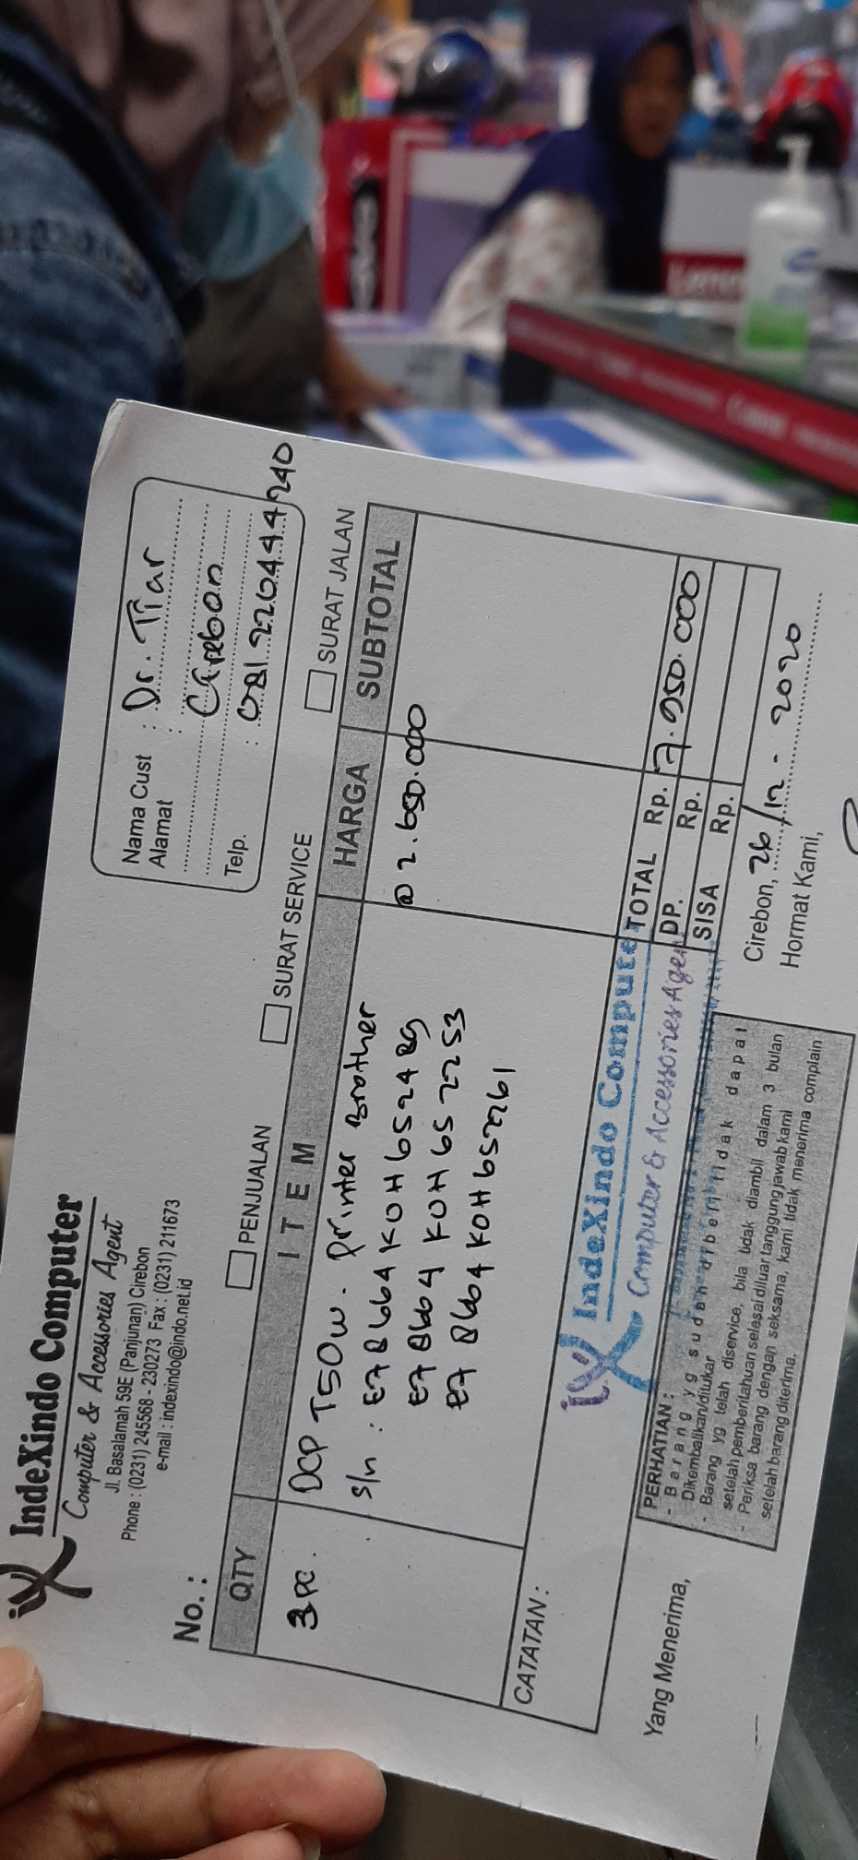 IndeXindo Computer
Computer & Accessories Agent
Jl. Basalamah 59E (Panjunan) Cirebon
Phone : (0231) 245568 - 230273 Fax : (0231) 211673
e-mail : indexindo@indo.net.id
Nama Cust : Dr. Tiar
Alamat : Cirebon
Telp. : 081 220444240
No. :
PENJUALAN SURAT SERVICE SURAT JALAN
QTY ITEM HARGA SUBTOTAL
3 pc. DCP T50w. Printer Brother @ 2.650.000
S/n :
CATATAN :
IndeXindo Computer
Computer & Accessories Agen
TOTAL Rp. 7.950.000
DP. Rp.
SISA Rp.
Yang Menerima,
PERHATIAN :
- Barang yg sudah dibeli tidak dapat
Dikembalikan/ditukar
- Barang yg telah diservice, bila tidak diambil dalam 3 bulan
setelah pemberitahuan selesai diluar tanggung jawab kami
- Periksa barang dengan seksama, kami tidak menerima complain
setelah barang diterima.
Cirebon, 26/12 - 2020
Hormat Kami,